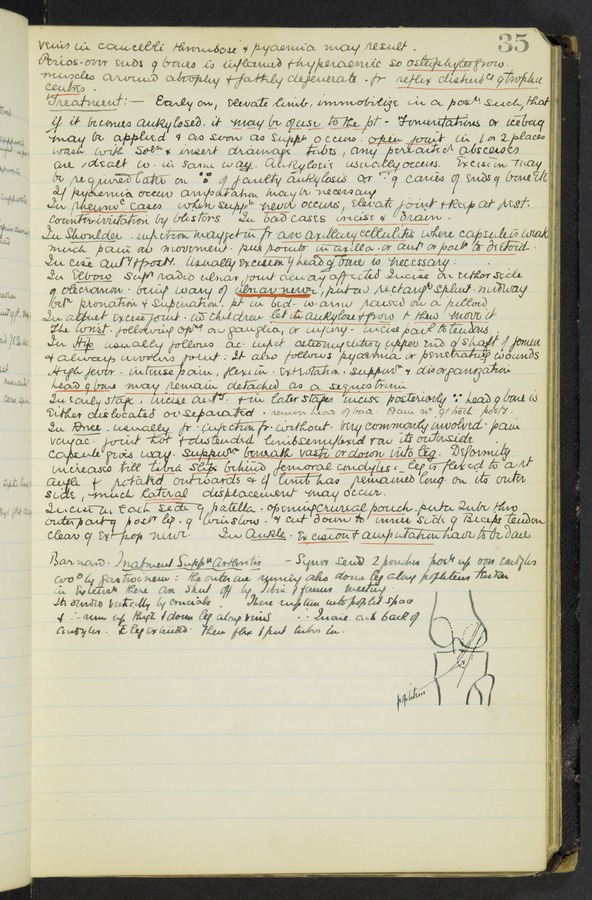 35
veins in cancelli thrombose & pyaemia may result.
Perios. over ends of bones is inflamed & hyperaemic so osteophytes grow.
muscles around atrophy & fattily degenerate. fr reflex disturbce of trophic
centres.
Treatment:— Early on, elevate limb, immobilize in a posn such, that
if it becomes ankylosed. it may be of use to the pt - Fomentations or icebag
may be applied & as soon as suppn occurs open joint in 1 or 2 places
wash with soln & insert drainage tubes, any periarticr abscesses
are dealt w. in same way. Ankylosis usually occurs. Excision may
be required later on of faulty ankylosis or of caries of ends of bone etc
If pyaemia occurs amputation may be necessary
In pneumoc cases when suppn never occurs, elevate joint & keep at rest.
counterirritation by blisters In bad cases incise & drain.
In Shoulder. infection may set in fr an axillary cellulitis where capsule is weak
much pain on movement. pus points in axilla. or ant or post to deltoid.
In cise antly & postly. Usually excision of head of bone is necessary:
In Elbow supr radio ulnar joint always affected Incise on either side
of olecranon. being wary of ulnar nerve, put on rectangr splint. midway
betn pronation & supination. pt in bed. w. arm raised on a pillow
In adult excise joint. in children let it ankylose & grow & then move it
The wrist. following opns on ganglia, or injury. incise parl to tendons
In Hip usually follows ac. infect osteomyelitis of upper end of shaft of femur
& always involves joint: It also follows pyaemia or penetrating wounds
High fever. intense pain, flexion. Ext rotation. suppurn & disorganization
head of bone may remain detached as a sequestrum
In early stage. incise antly. & in later stages incise posteriorly ∵ head of bone is
either dislocated or separated. remove head of bone. Drain
In Knee. usually fr. infection fr without. very commonly involved. pain
joint hot & distended limb semiflexed & on its outer side
capsule gives way. suppurn beneath vasti or down into leg. Deformity
increases till tibia slips behind femoral condyles. leg is flexed to a rt
angle & rotated outwards & if limb has remained long on its outer
side, much lateral displacement may occur.
Incise on each side of patella. opening crureal pouch. put a tube thro
outer part of post lig. of Winslow. & cut down to inner side of Biceps tendon
clear of Ext pop nerve. In Ankle. Excision & amputation have to be done
Barnard. Treatment Suppn Arthritis — Synov send 2 pouches postly up over condyles
covd by gastrocnemi: the outer one running also down leg along popliteus tendon
in extension these are shut off by tibia & femur meeting
Its divided vertically by crucials. These rupture into poplitl space
& ∴ run up thigh & down leg along veins ∴ Incise at back of
condyles. leg extended. Then flex & put tubes in.
popliteus